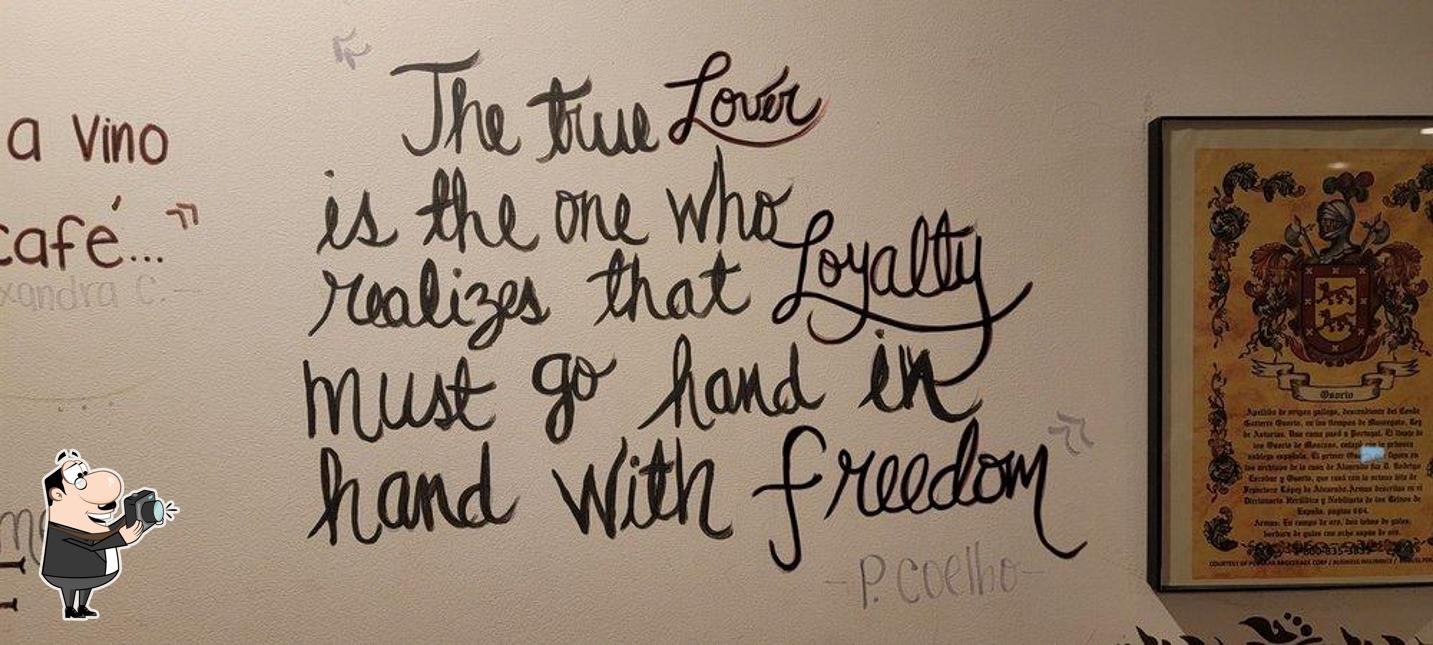 a Vino
café... »
xandra C. -
« The true Lover
is the one who
realizes that Loyalty
must go hand in
hand with freedom »
- P. Coelho -
Osorio
Apellido de origen gallego, descendiente del Conde
Gutierre Osorio, en los tiempos de Mauregato, Rey
de Asturias. Una rama pasó a Portugal. El linaje de
los Osorio de Moscoso, enlazó con la primera
nobleza española. El primer figura en
los archivos de la casa de Alvarado fue D. Rodrigo
Escobar y Osorio, que casó con la octava hija de
Francisco López de Alvarado. Armas descritas en el
Diccionario Heráldico y Nobiliario de los Reinos de
España, página 604.
Armas: En campo de oro, dos lobos de gules,
bordura de gules con ocho aspas de oro.
COURTESY OF BROKERAGE CORP / BUSINESS INSURANCE /